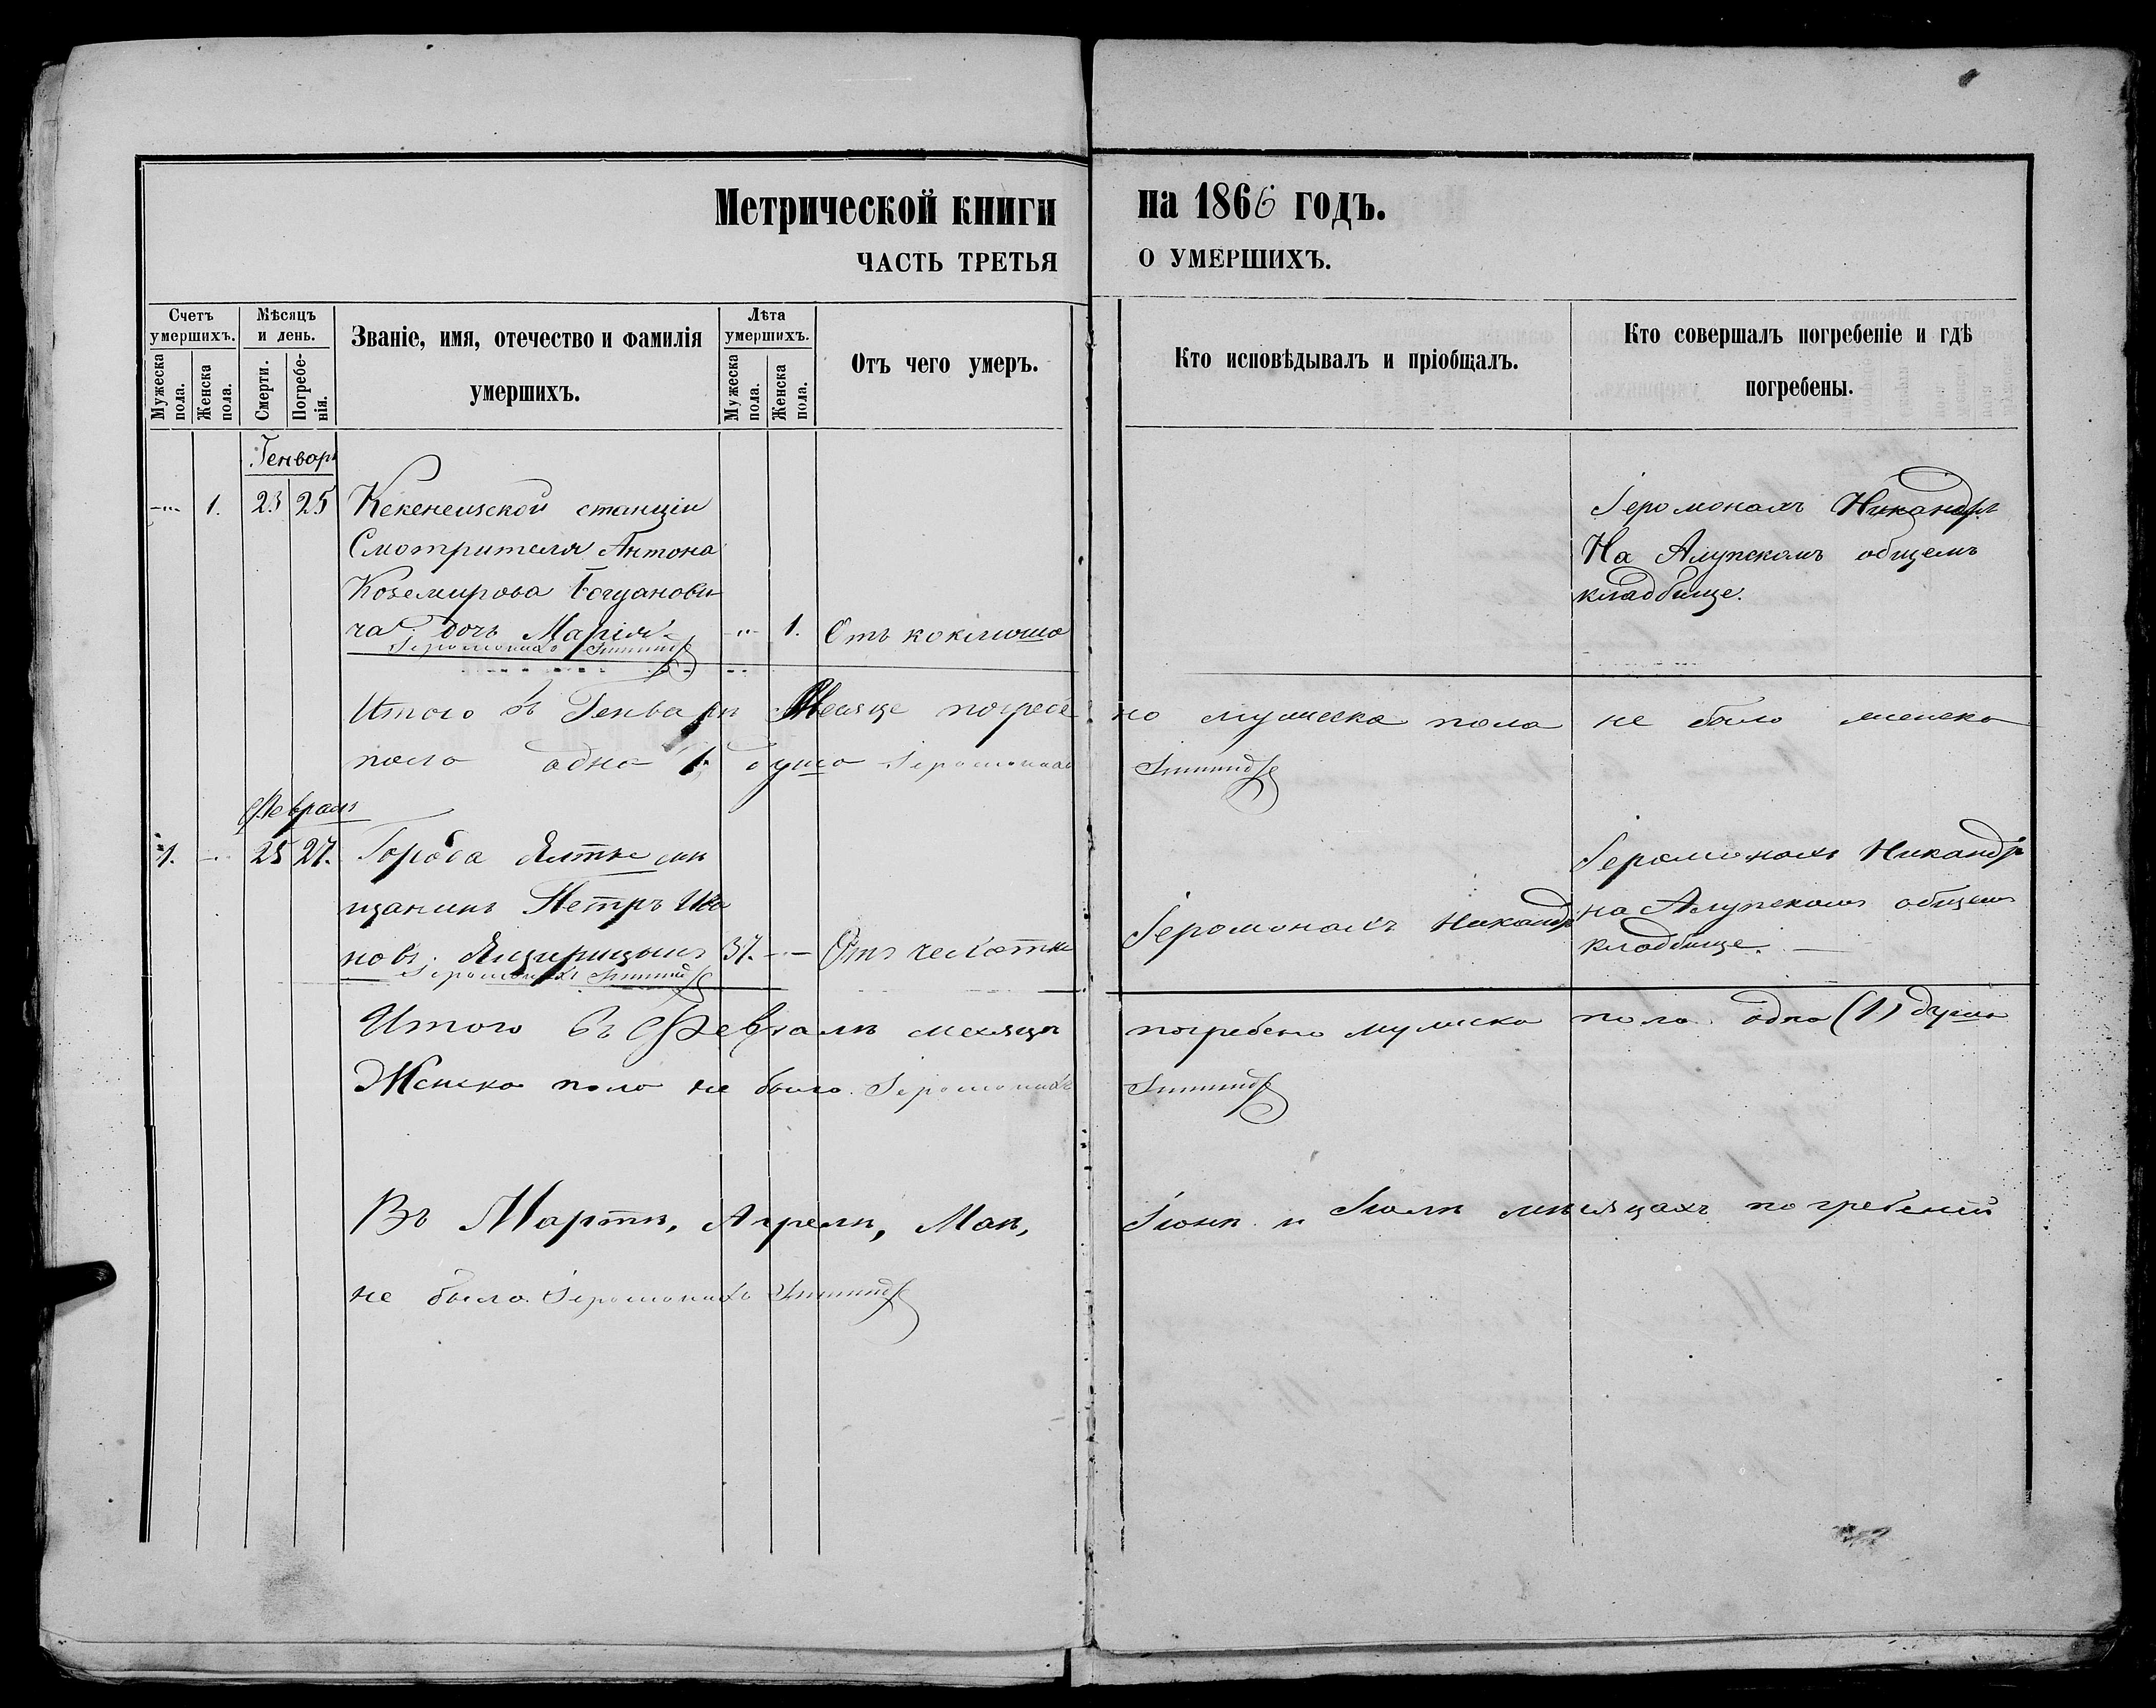 Метрической книги на 1866 годъ.
ЧАСТЬ ТРЕТЬЯ О УМЕРШИХЪ.
Счетъ умершихъ.
Мужеска пола.
Женска пола.
Мѣсяцъ и день.
Смерти.
Погребенія.
Званіе, имя, отечество и фамилія
умершихъ.
Лѣта умершихъ.
Мужеска пола.
Женска пола.
Отъ чего умеръ.
Кто исповѣдывалъ и пріобщалъ.
Кто совершалъ погребеніе и гдѣ
погребены.
Генварь
-"- 1. 23 25 Кекенеизской станціи
Смотрителя Антона
Коземирова Богданови
ча дочь Марія. -"- 1. Отъ коклюша
Іеромонахъ
Іеромонахъ Никандръ
На Алупскомъ общемъ
кладбище.
Итого въ Генварѣ месяце погребе но мужеска пола не было женска
пола одна 1. душа Іеромонахъ
Февраль
1. - 25 27. Города Ялты мѣ
щанинъ Петръ Ива
новъ 37. - Отъ чехотки
Іеромонахъ
Іеромонахъ Никандръ
Іеромонахъ Никандръ
на Алупскомъ общемъ
кладбище.
Итого въ Февралѣ месяцѣ погребено мужеска пола одна (1) душа
Женска пола не было. Іеромонахъ
Въ Мартѣ, Апрелѣ, Маѣ, Іюнѣ и Іюлѣ мѣсяцахъ погребеній
не было. Іеромонахъ